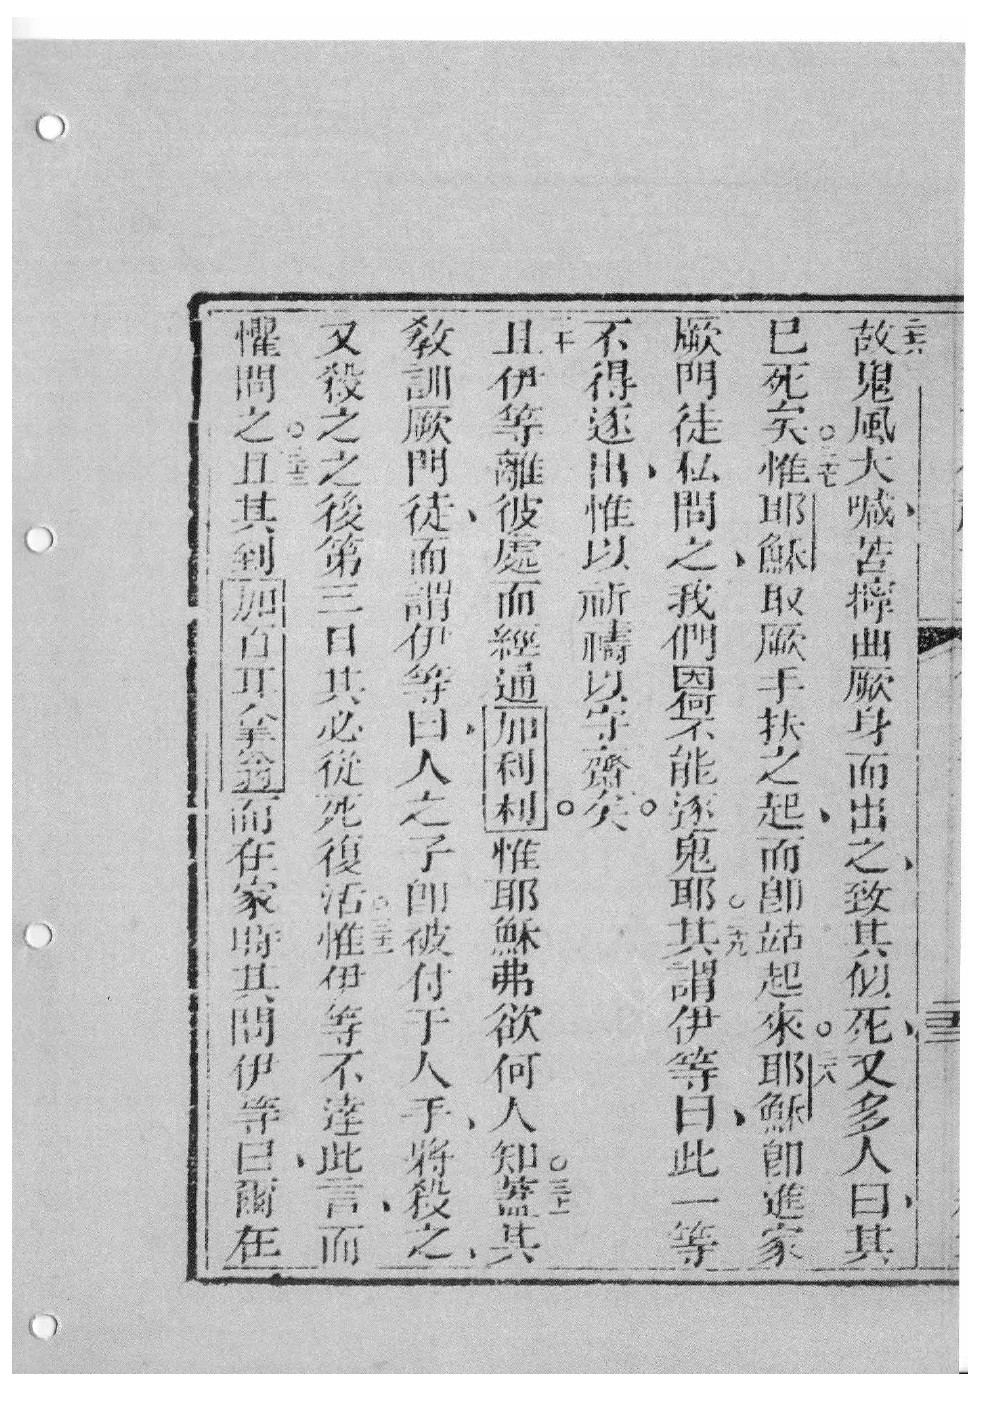 二六故鬼風大喊苦擰曲厥身而出之致其似死又多人曰其
已死矣○二七惟耶穌取厥手扶之起而卽站起來○二八耶穌卽進家
厥門徒私問之我們因何不能逐鬼耶○二九其謂伊等曰此一等
不得逐出惟以祈禱以守齋矣○
三十且伊等離彼處而經通加利利○惟耶穌弗欲何人知○三一蓋其
教訓厥門徒而謂伊等曰人之子卽被付于人手將殺之
又殺之之後第三日其必從死復活○三二惟伊等不達此言而
懼問之○三三且其到加百耳拿翁而在家時其問伊等曰爾在